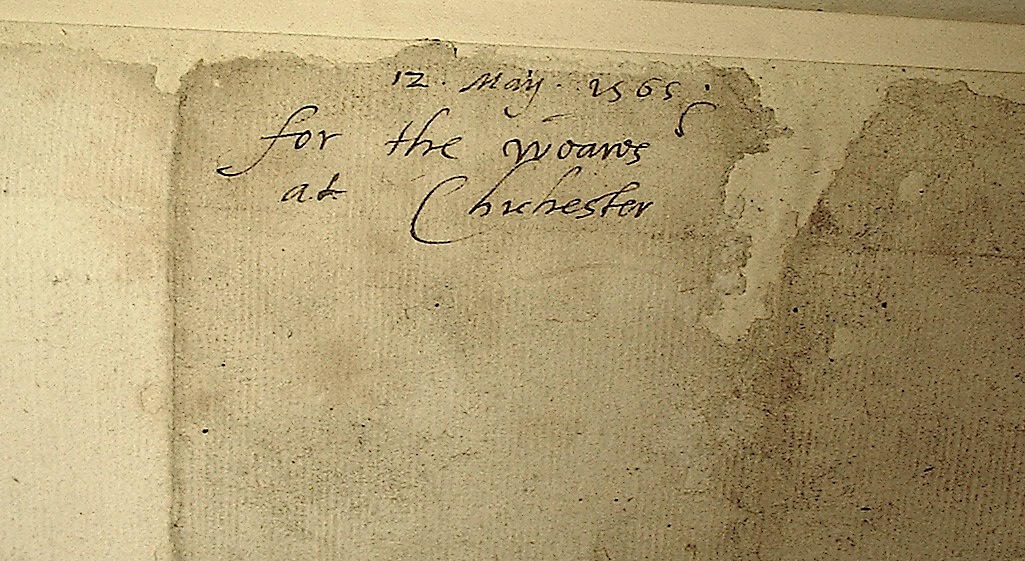 12. May. 1565.
for the woards
at Chichester